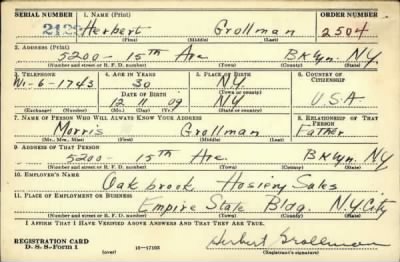 SERIAL NUMBER 1. NAME (Print) ORDER NUMBER
Herbert Grollman 2504
(First) (Middle) (Last)
2. ADDRESS (Print)
5200 - 15th Ave Bklyn. N.Y.
(Number and street or R. F. D. number) (Town) (County) (State)
3. TELEPHONE 4. AGE IN YEARS 5. PLACE OF BIRTH 6. COUNTRY OF CITIZENSHIP
Wi-6-1743 30 N.Y.
DATE OF BIRTH (Town or county)
12 11 09 N.Y. U.S.A.
(Exchange) (Number) (Mo.) (Day) (Yr.) (State or country)
7. NAME OF PERSON WHO WILL ALWAYS KNOW YOUR ADDRESS 8. RELATIONSHIP OF THAT PERSON
Morris Grollman Father
(Mr., Mrs., Miss) (First) (Middle) (Last)
9. ADDRESS OF THAT PERSON
5200 - 15th Ave. Bklyn. NY
(Number and street or R. F. D. number) (Town) (County) (State)
10. EMPLOYER'S NAME
Oakbrook Hosiery Sales
11. PLACE OF EMPLOYMENT OR BUSINESS
Empire State Bldg. N.Y. City
(Number and street or R. F. D. number) (Town) (County) (State)
I AFFIRM THAT I HAVE VERIFIED ABOVE ANSWERS AND THAT THEY ARE TRUE.
REGISTRATION CARD
D. S. S. Form 1 (over) 16-17105 Herbert Grollman
(Registrant's signature)